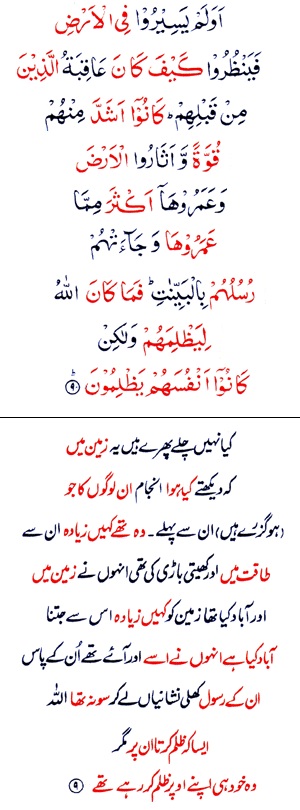 اَوَلَمْ يَسِيْرُوْا فِي الْاَرْضِ
فَيَنْظُرُوْا كَيْفَ كَانَ عَاقِبَةُ الَّذِيْنَ
مِنْ قَبْلِهِمْ ؕ كَانُوْۤا اَشَدَّ مِنْهُمْ
قُوَّةً وَّ اَثَارُوا الْاَرْضَ
وَعَمَرُوْهَاۤ اَكْثَرَ مِمَّا
عَمَرُوْهَا وَجَآءَتْهُمْ
رُسُلُهُمْ بِالْبَيِّنٰتِ ؕ فَمَا كَانَ اللّٰهُ
لِيَظْلِمَهُمْ وَلٰكِنْ
كَانُوْۤا اَنْفُسَهُمْ يَظْلِمُوْنَ ؕ ﴿۹﴾
کیا نہیں چلے پھرے ہیں یہ زمین میں
کہ دیکھتے کیا ہوا انجام ان لوگوں کا جو
(ہو گزرے ہیں) ان سے پہلے۔ وہ تھے کہیں زیادہ ان سے
طاقت میں اور کھیتی باڑی کی تھی انہوں نے زمین میں
اور آباد کیا تھا زمین کو کہیں زیادہ اس سے جتنا
آباد کیا ہے انہوں نے اسے اور آئے تھے اُن کے پاس
ان کے رسول کھلی نشانیاں لے کر سو نہ تھا اللہ
ایسا کہ ظلم کرتا ان پر مگر
وہ خود ہی اپنے اوپر ظلم کر رہے تھے ﴿۹﴾